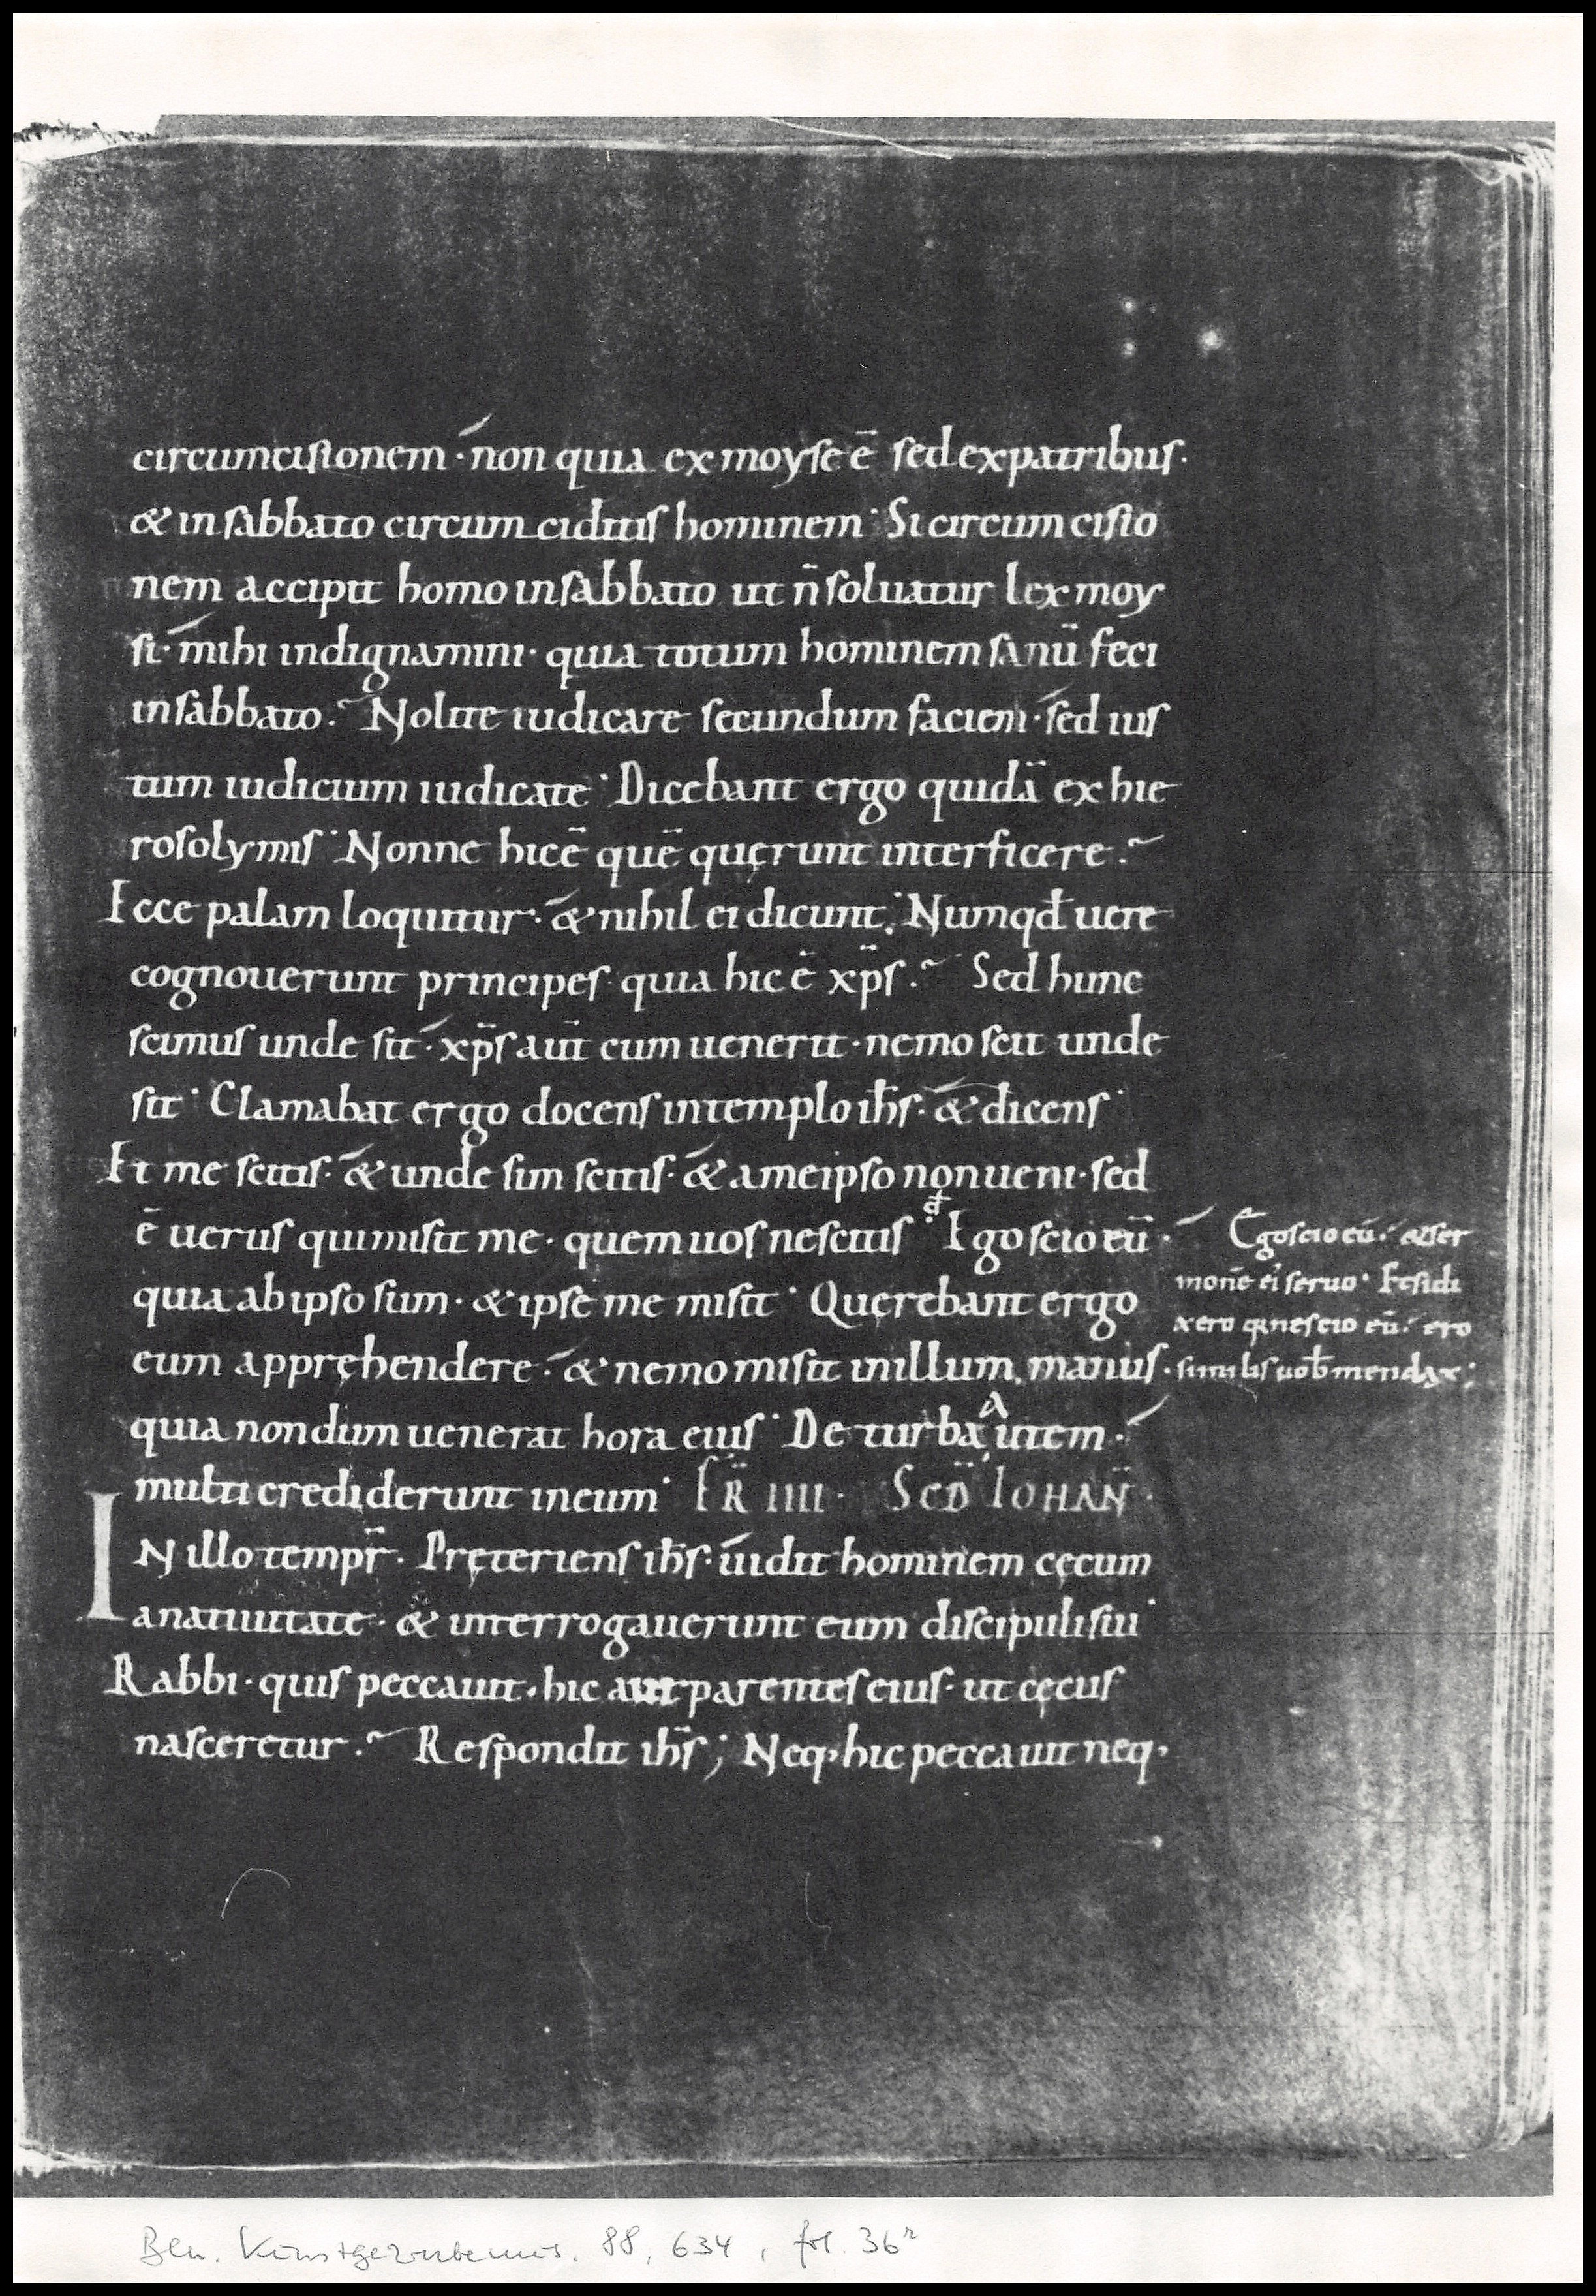 circumcisionem · non quia ex moyse ē sed ex patribus ·
& in sabbato circumciditis hominem · Si circumcisio
nem accipit homo in sabbato ut n̄ soluatur lex moy
si · mihi indignamini · quia totum hominem sanū feci
in sabbato ? Nolite iudicare secundum faciem · sed ius
tum iudicium iudicate · Dicebant ergo quidā ex hie
rosolymis · Nonne hic ē quē quęrunt interficere ?
Ecce palam loquitur · & nihil ei dicunt . Numqđ uere
cognouerunt principes quia hic ē xp̄s ? Sed hunc
scimus unde sit · xp̄s aut̄ cum uenerit · nemo scit unde
sit · Clamabat ergo docens in templo ih̄s · & dicens ·
Et me scitis · & unde sim scitis · & a me ipso non ueni · sed
ē uerus qui misit me · quem uos nescitis · đ Ego scio eū ·
quia ab ipso sum · & ipse me misit · Quęrebant ergo
eum appręhendere · & nemo misit in illum manus ·
quia nondum uenerat hora eius · De turba autem ·
multi crediderunt in eum · FR̄ IIII · SCD̄ IOHAN̄ ·
IN illo tempr̄ · Pręteriens ih̄s · uidit hominem cęcum
a natiuitate · & interrogauerunt eum discipuli sui ·
Rabbi · quis peccauit · hic aut parentes eius · ut cęcus
nasceretur ? Respondit ih̄s ; Neq; hic peccauit neq;
Ego scio eū · & ser
monē ei seruo · Et si di
xero q nescio eū · ero
similis uob̄ mendax ;
88, 634, fol. 36r